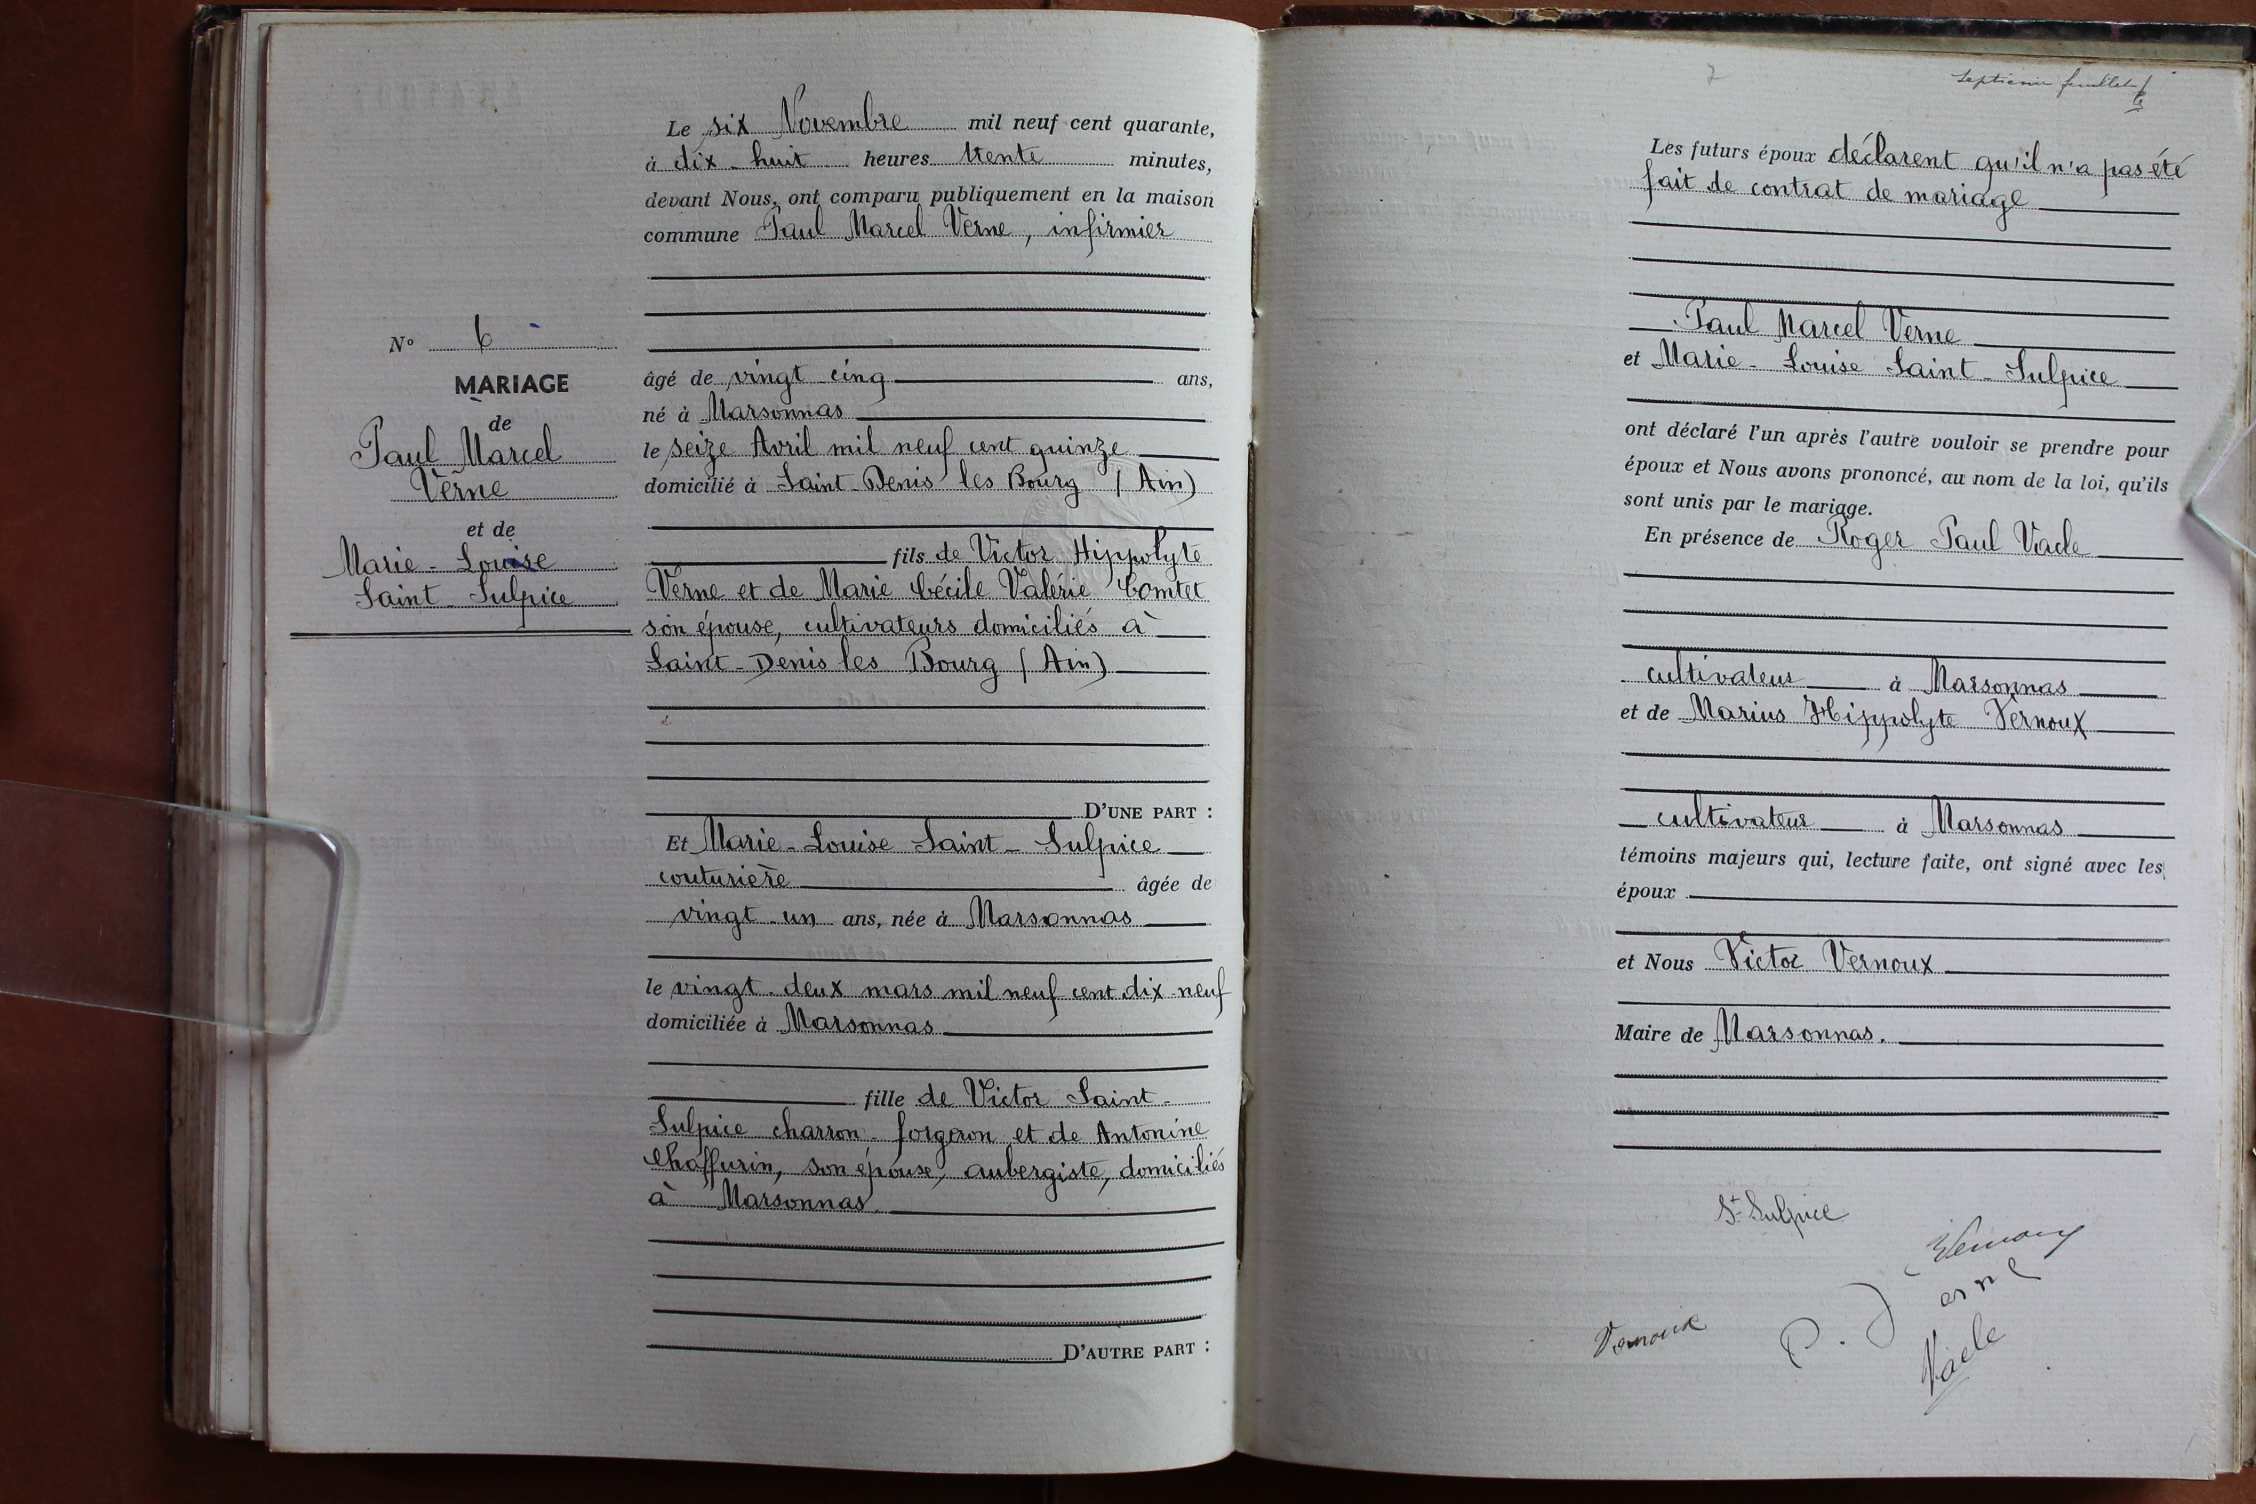 N° 6
MARIAGE
de
Paul Marcel
Verne
et de
Marie-Louise
Saint-Sulpice
Le six Novembre mil neuf cent quarante,
à dix-huit heures trente minutes,
devant Nous, ont comparu publiquement en la maison
commune Paul Marcel Verne, infirmier
âgé de vingt cinq ans,
né à Marsonnas
le seize Avril mil neuf cent quinze
domicilié à Saint-Denis les Bourg (Ain)
fils de Victor Hippolyte
Verne et de Marie Cécile Valérie Comtet
son épouse, cultivateurs domiciliés à
Saint-Denis les Bourg (Ain)
D'UNE PART :
Et Marie-Louise Saint-Sulpice
couturière âgée de
vingt-un ans, née à Marsonnas
le vingt-deux mars mil neuf cent dix-neuf
domiciliée à Marsonnas
fille de Victor Saint-
Sulpice charron-forgeron et de Antonine
Chaffurin, son épouse, aubergiste, domiciliés
à Marsonnas
D'AUTRE PART :
7
septième feuillet
Les futurs époux déclarent qu'il n'a pas été
fait de contrat de mariage
Paul Marcel Verne
et Marie-Louise Saint-Sulpice
ont déclaré l'un après l'autre vouloir se prendre pour
époux et Nous avons prononcé, au nom de la loi, qu'ils
sont unis par le mariage.
En présence de Roger Paul Viacle
cultivateur à Marsonnas
et de Marius Hippolyte Vernoux
cultivateur à Marsonnas
témoins majeurs qui, lecture faite, ont signé avec les
époux
et Nous Victor Vernoux
Maire de Marsonnas.
St Sulpice
Vernoux
P. Verne
Vernoux
Viacle